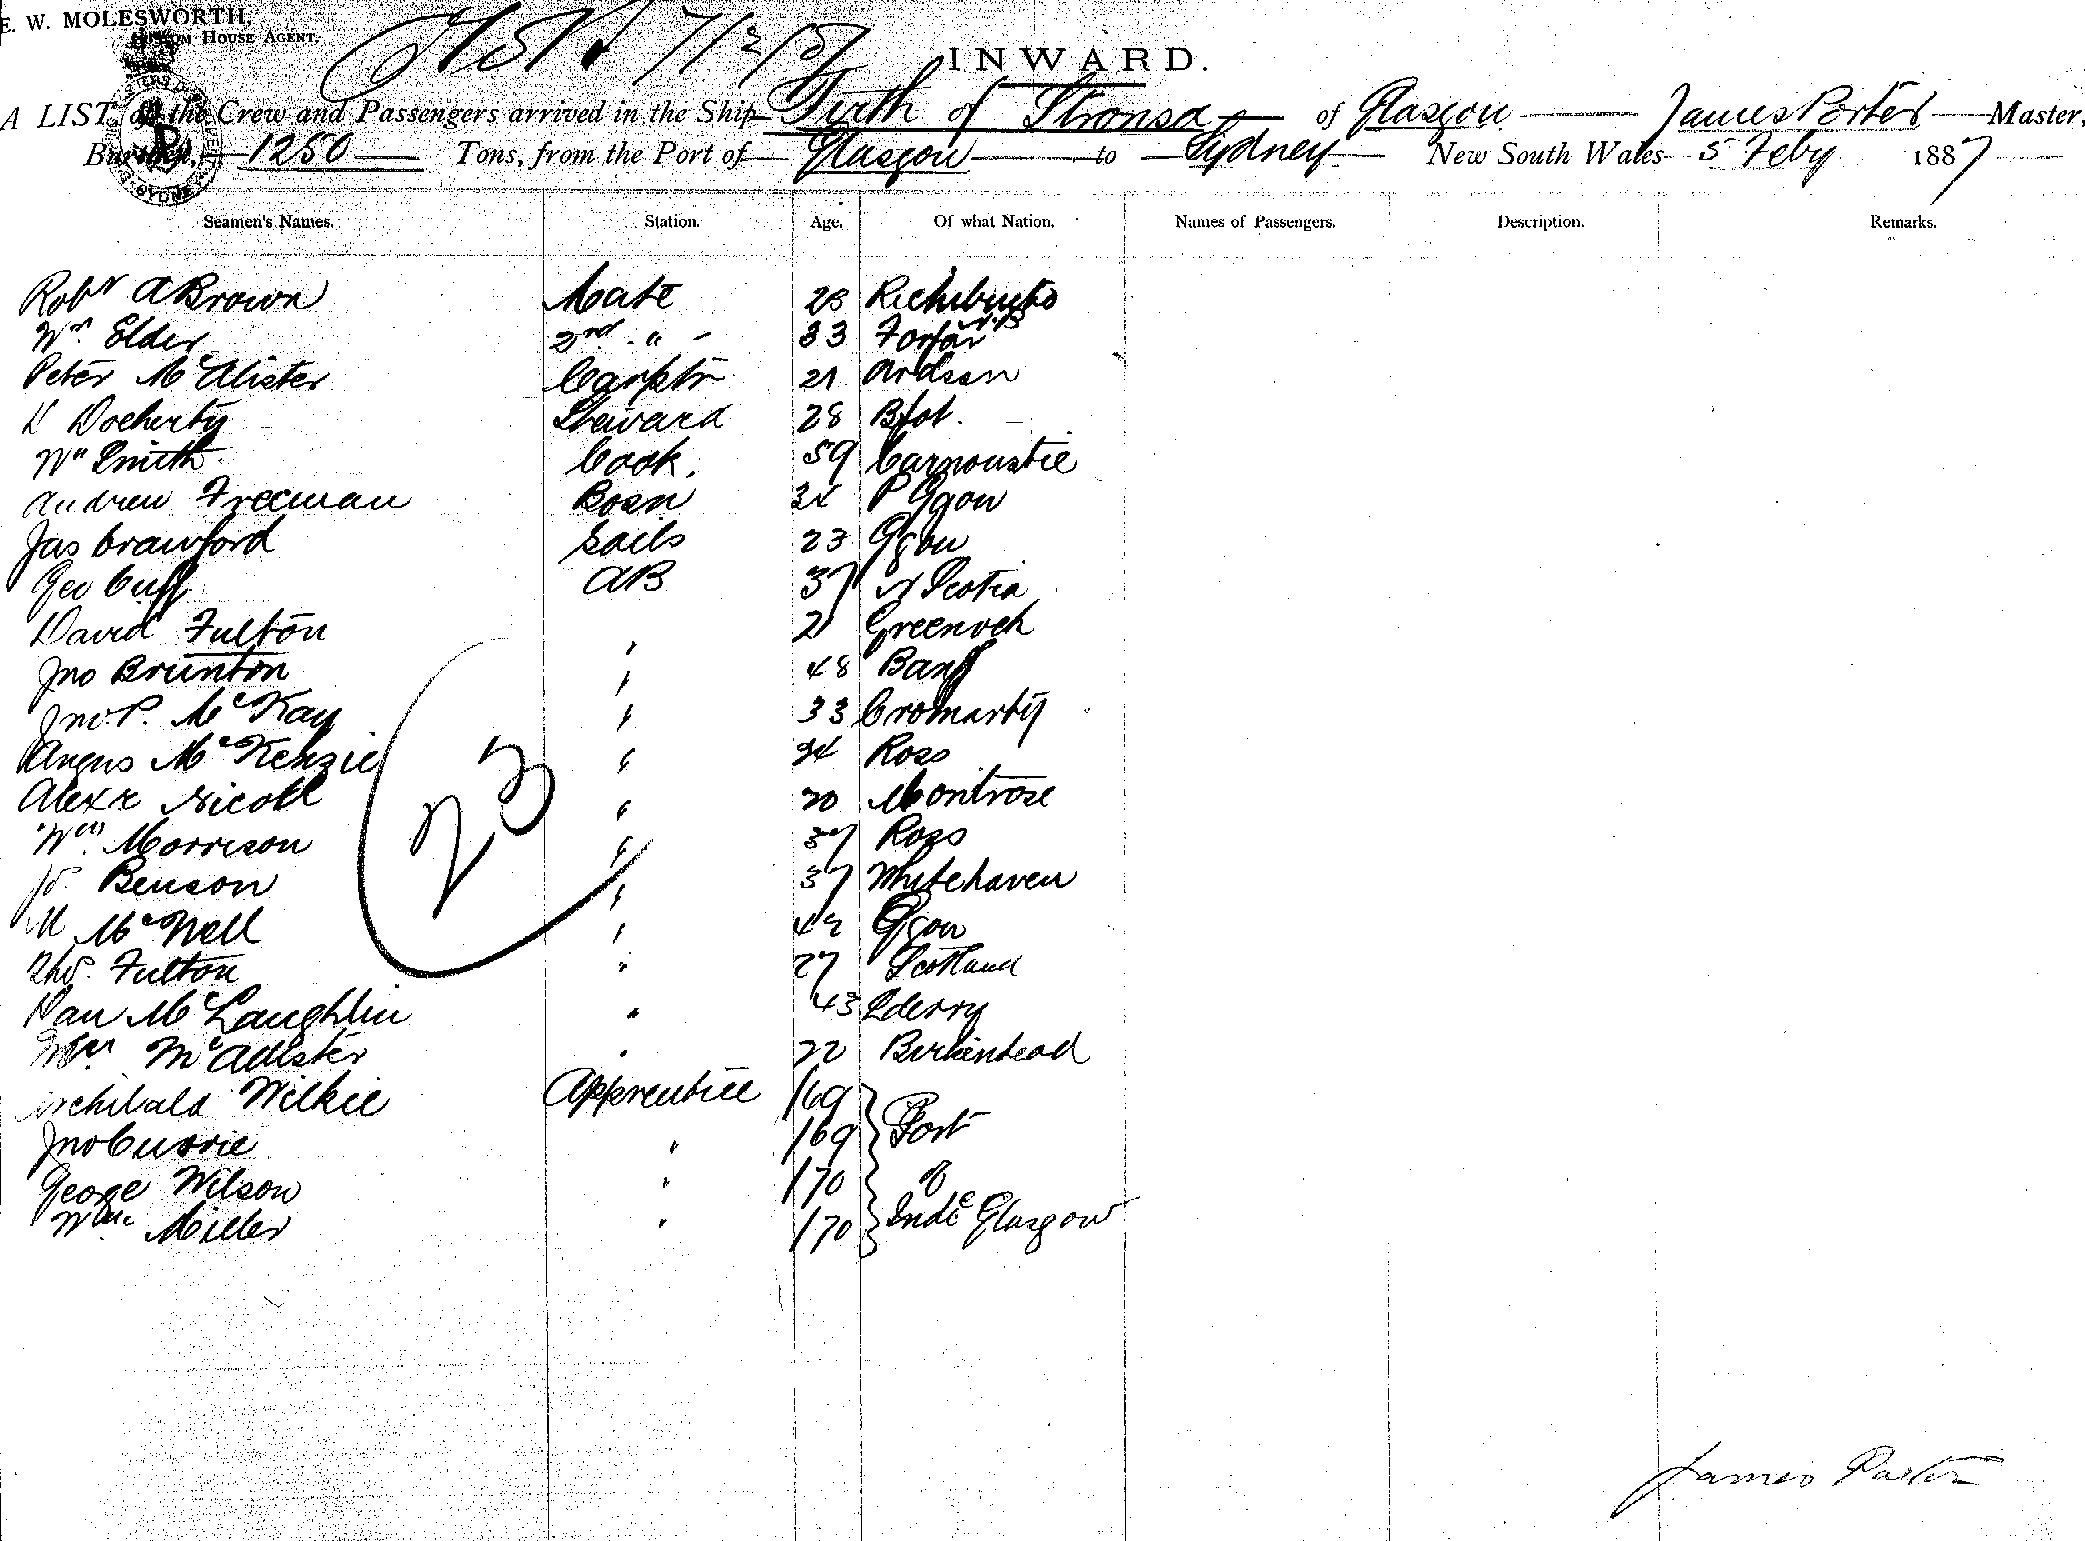 E. W. MOLESWORTH,
CUSTOM HOUSE AGENT.
INWARD.
A LIST of the Crew and Passengers arrived in the Ship Firth of Stronsa of Glasgow James Porter Master,
Burthen, 1250 Tons, from the Port of Glasgow to Sydney New South Wales 5 Feby 1887
Seamen's Names. Station. Age. Of what Nation. Names of Passengers. Description. Remarks.
Robt A Brown Mate 28 Richibucto
Wm Elder 2nd " 33 Forfar
Peter McAlister Carptr 21 Ardssn
Docherty Steward 28 Bfst.
Wm Smith Cook. 59 Carnoustie
Andrew Freeman Bosn 34 P Ggow
Jas Crawford Sails 23 Ggow
Geo Cuff AB 37 N Scotia
David Fulton " 21 Greenock
Jno Brunton " 48 Banff
Jno. P. McKay " 33 Cromarty
Angus McKenzie " 34 Ross
Alexr Nicoll " 20 Montrose
Wm Morrison " 37 Ross
Benson " 37 Whitehaven
M McNeill " 42 Ggow
Thos. Fulton " 27 Scotland
Dan McLaughlin " 43 Lderry
McAllister " 22 Birkenhead
Archibald Wilkie Apprentice /69
Jno Currie " /69 Port
George Wilson " /70 of
Wm Miller " /70 Inde Glasgow
23
James Porter